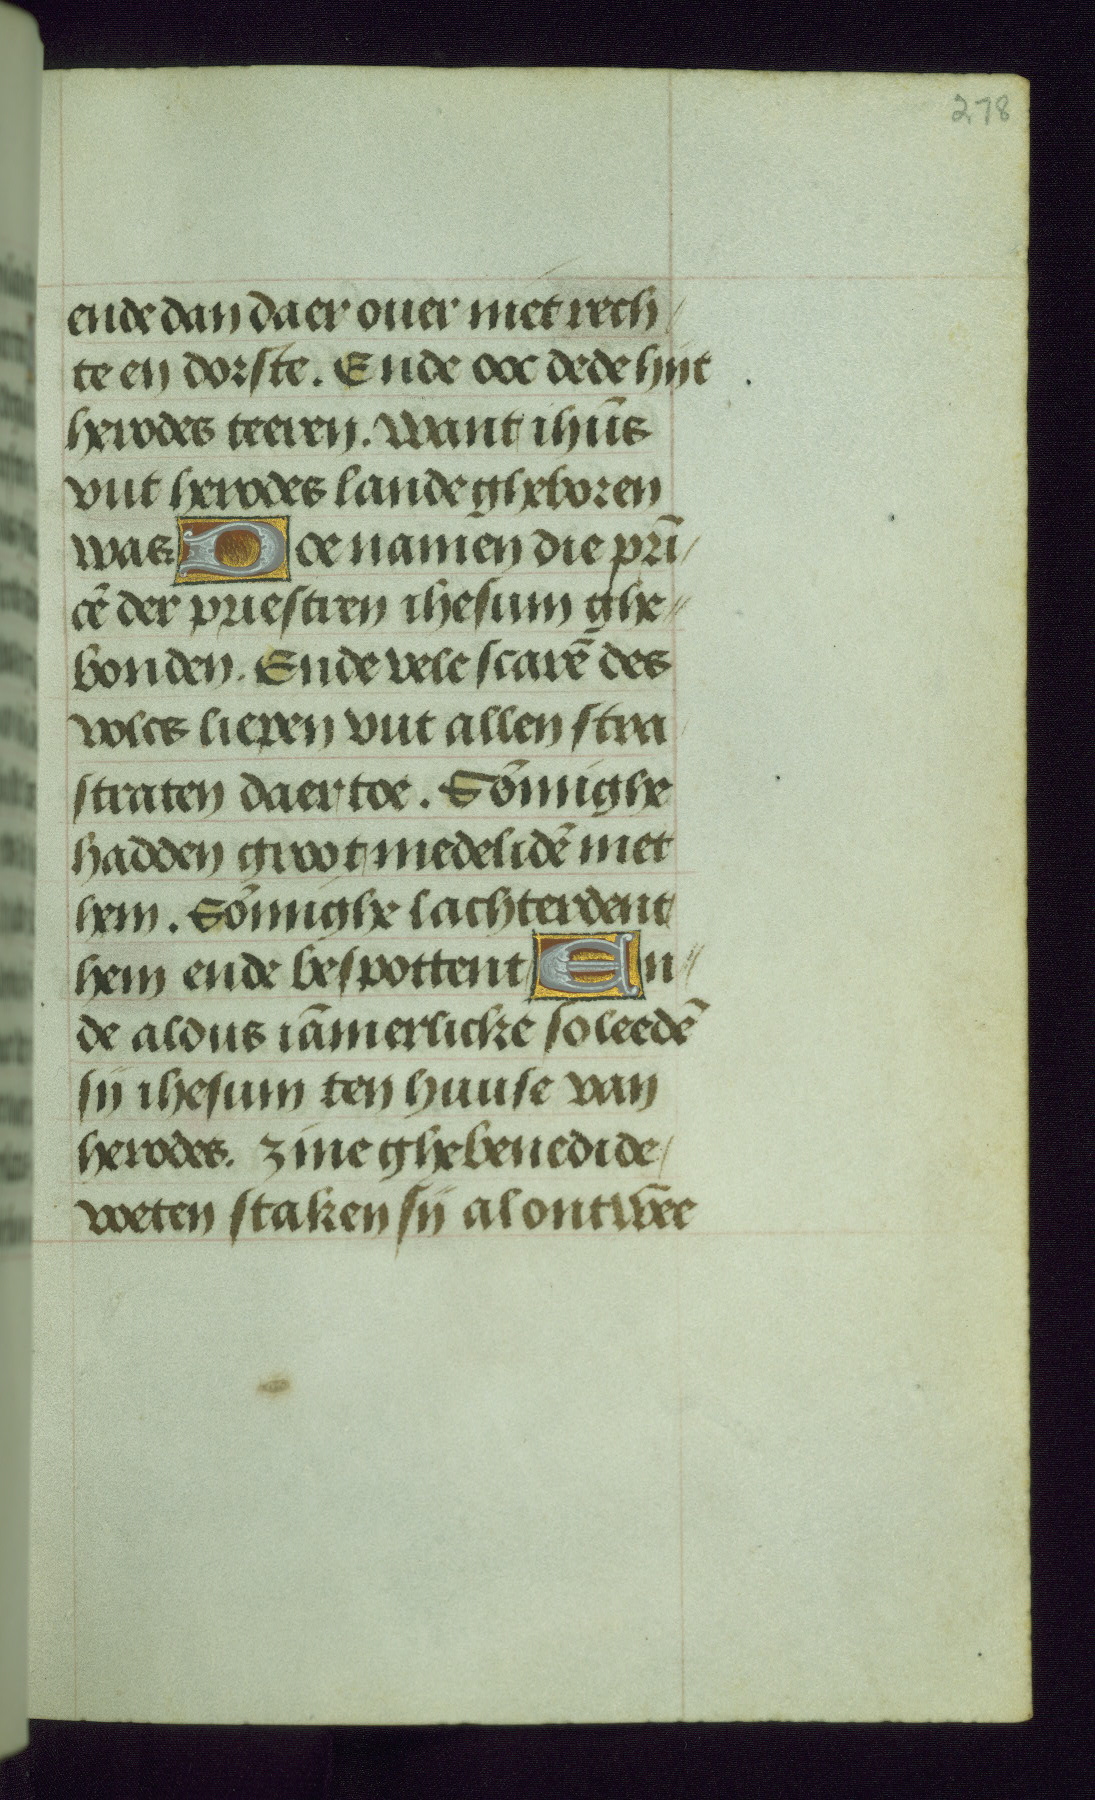 278
ende dan daer ouer met rech/
te en dorste. Ende ooc dede hijt
herodes teeren. Want ihūs
vut herodes lande gheboren
was. Doe namēn die prī/
cē der priestren ihesum ghe//
bonden. Ende vele scarē des
volcs liepen vut allen stra
straten daer toe. Sōmighe
hadden groot medelidē met
hem. Sōmighe lachterdent
hem ende bespottent/ En//
de aldus iāmerlicke so leedē
sij ihesum ten huuse van
herodes. zine ghebenedide/
voeten staken sij al ontwēe